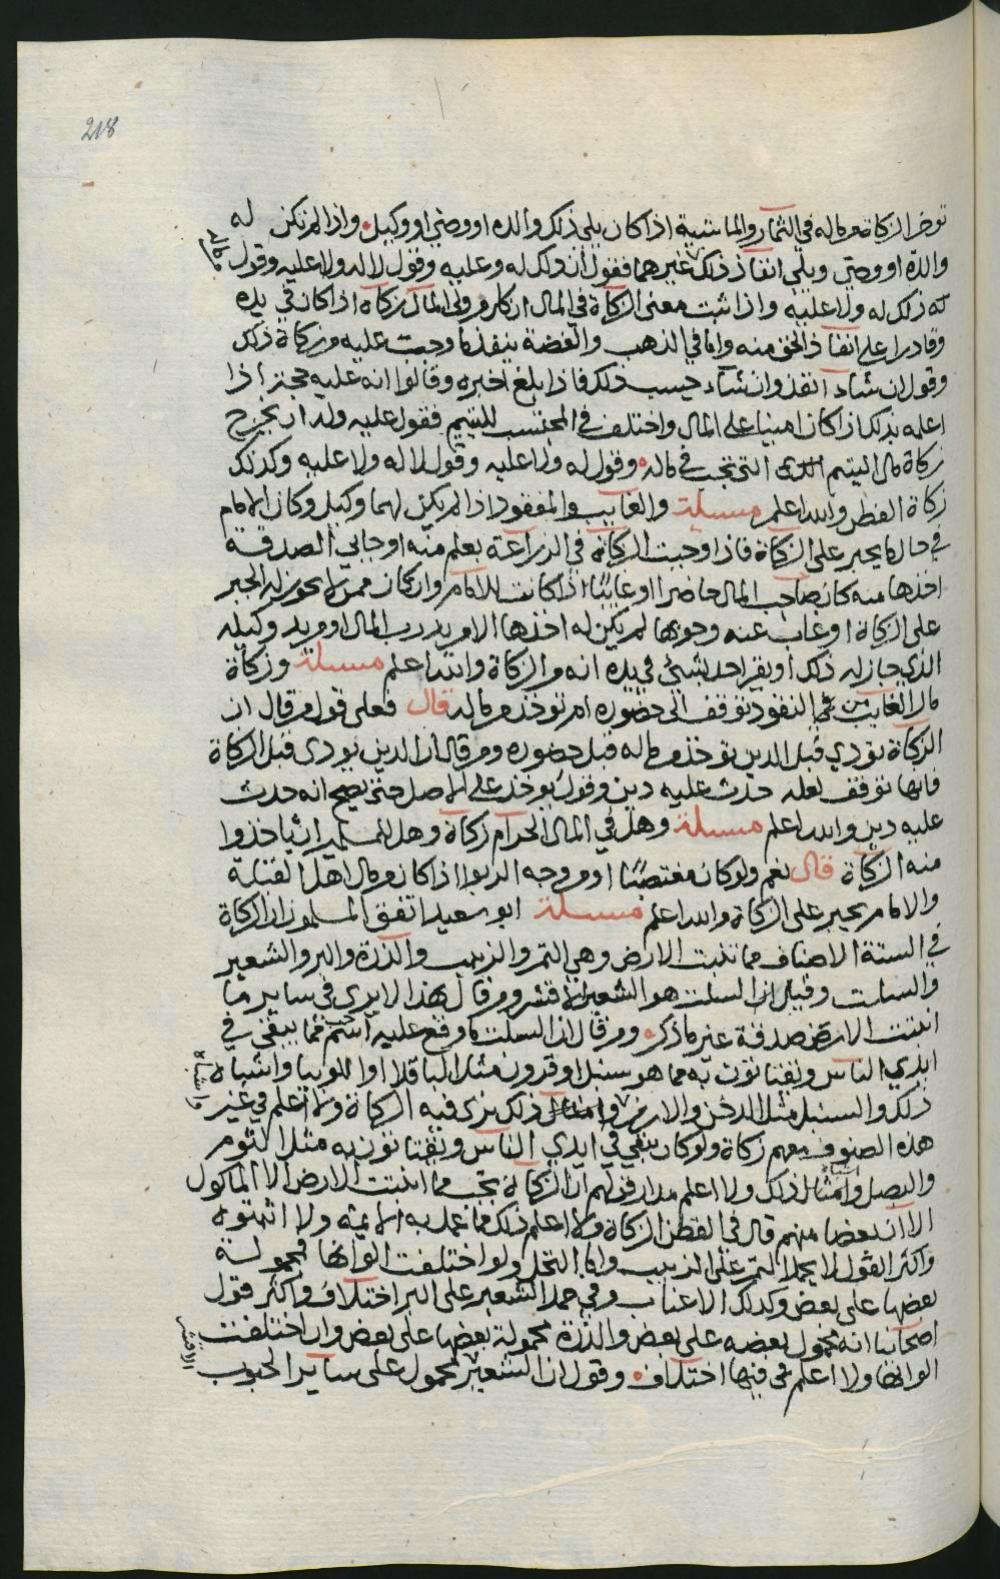 218
توخذ الزكاة من ماله في الثمار والماشية اذا كان يلي ذلك والده او وصي او وكيل واذا لم تكن له
والدا او وصي ويلي انفاذ ذلك غيرهما فقول ان ذلك له وعليه وقول لا له ولا عليه وقول
ذلك له ولا عليه واذا ثبت معنى الزكاة في المال ان كل من ولي المال زكاه اذا كان في يده
وقادرا على انفاذ الحق منه واما في الذهب والفضة ينفذ ما وجبت عليه من زكاة ذلك
وقول ان شاء انفذ وان شاء حسب ذلك فاذا بلغ اخبره وقالوا انه عليه حجة اذا
اعلمه بذلك اذا كان امينا على المال واختلف في المحتسب لليتيم فقول عليه وله ان يخرج
زكاة مال اليتيم التي تجب في ماله وقول له ولا عليه وقول لا له ولا عليه وكذلك
زكاة الفطر والله اعلم مسئلة والغايب والمفقود اذا لم يكن لهما وكيل وكان الامام
في حال ما يجبر على الزكاة فاذا وجبت الزكاة في الزراعة بعلم منه او جابي الصدقة
اخذها منه كان صاحب المال حاضرا او غايبا اذا كانت للامام وان كان ممن لا يجوز له الجبر
على الزكاة او غاب عنه وجوبها لم يكن له اخذها الا من يد رب المال او من يد وكيله
الذي جاز له ذلك او يقر احد بشيء في يده انه من الزكاة والله اعلم مسئلة وزكاة
مال الغايب من النقود توقف الى حضوره ام توخذ من ماله قال فعلى قول من قال ان
الزكاة تودي قبل الدين توخذ من ماله قبل حضوره ومن قال ان الدين يودى قبل الزكاة
فانها توقف لعله حدث عليه دين وقول يوخذ على الاصل حتى يصح انه حدث
عليه دين والله اعلم مسئلة وهل في المال الحرام زكاة وهل للمسلمين ان ياخذوا
منه الزكاة قال نعم ولو كان مغتصبا او من وجه الربوا اذا كان من مال اهل القبلة
والامام يجبر على الزكاة والله اعلم مسئلة ابو سعيد اتفق المسلمون ان الزكاة
في الستة الاصناف مما تنبت الارض وهي التمر والزبيب والذرة والبر والشعير
والسلت وقيل ان السلت هو الشعير الاقشر ومن قال بهذا لا يرى في ساير ما
انبتت الارض صدقة غير ما ذكر ومن قال ان السلت ما وقع عليه اسم حب مما يبقى في
ايدي الناس ويقتاتون به مما هو سنبل او قرون مثل الباقلا او اللوبيا واشباه
ذلك والسنبل مثل الدخن والارز وامثال ذلك يرى فيه الزكاة ولا اعلم في غير
هذه الصنوف معهم زكاة ولو كان يبقى في ايدي الناس ويقتاتون به مثل الثوم
والبصل وامثال ذلك ولا اعلم من قولهم ان الزكاة تجب مما انبتت الارض الا الماكول
الا ان بعضا منهم قال في القطن الزكاة ولا اعلم ذلك مما عمل به الايمة ولا اثبتوه
واكثر القول لا يحمل التمر على الزبيب واما النخل ولو اختلفت الوانها فمحمولة
بعضها على بعض وكذلك الاعناب وفي حمل الشعير على البر اختلاف واكثر قول
اصحابنا انه محمول بعضه على بعض والذرة محمولة بعضها على بعض وان اختلفت
الوانها ولا اعلم في فيها اختلاف وقول ان الشعير محمول على ساير الحبوب
الاقشر